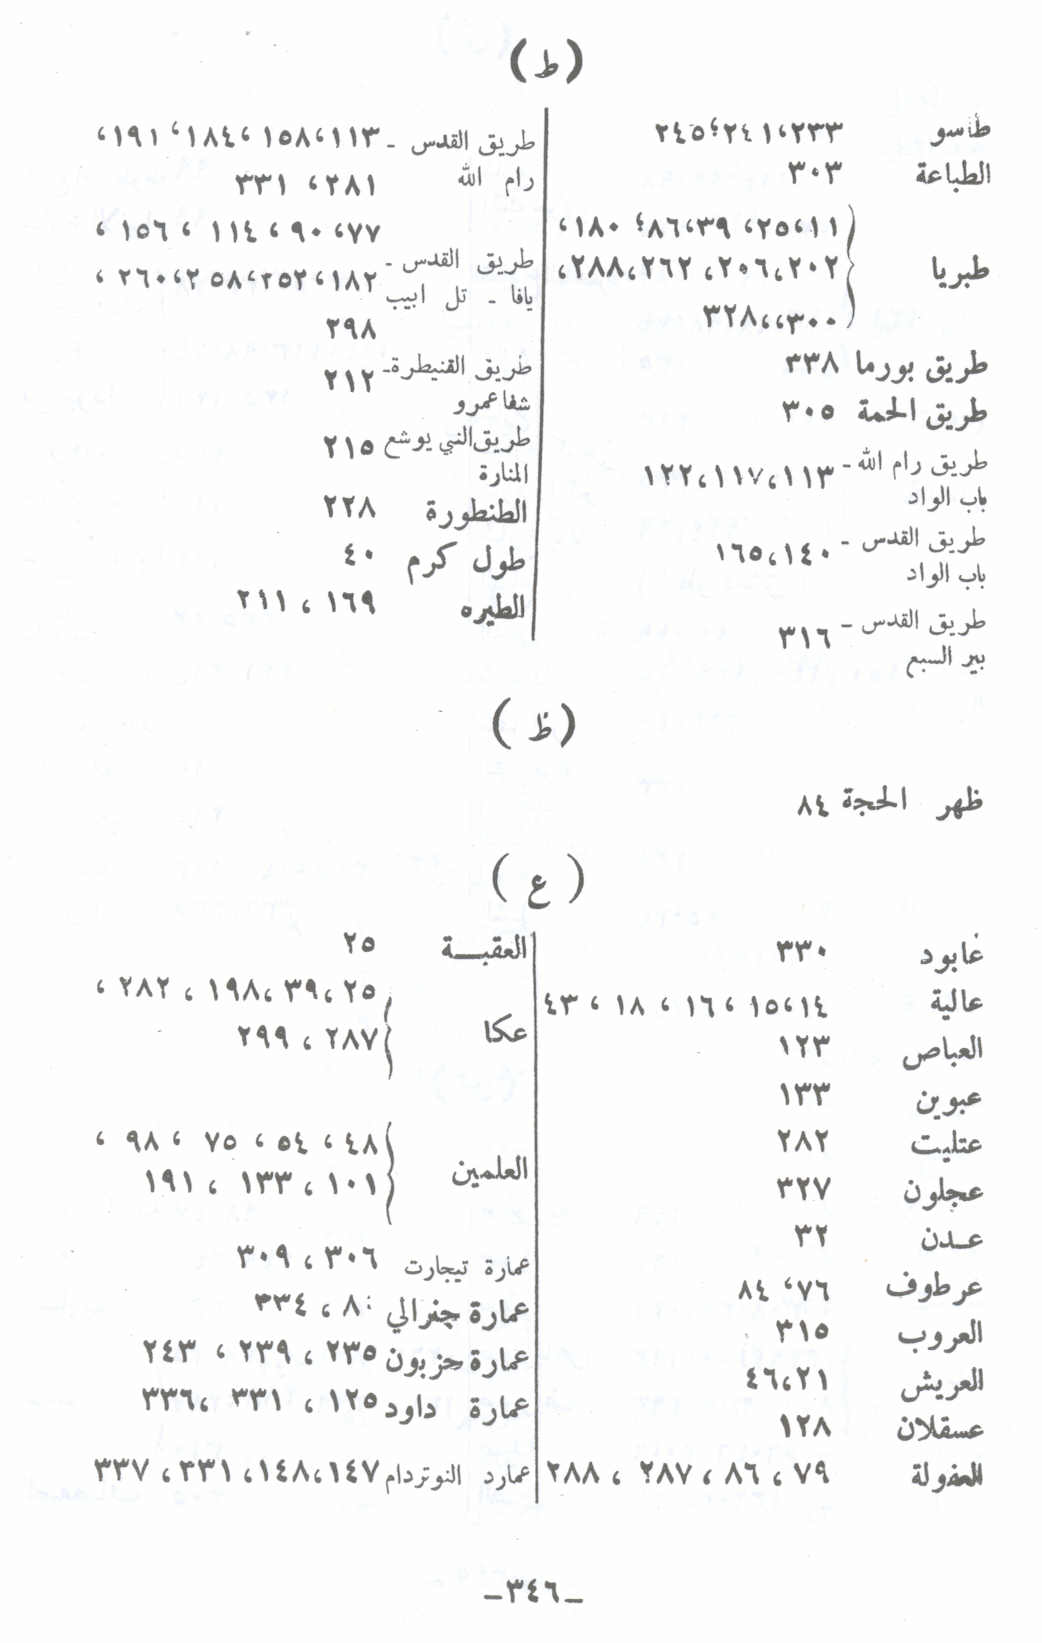 (ط)
طاسو ٢٣٣،٢٤١،٢٤٥
الطباعة ٣٠٣
١١،٢٥، ٣٩،٨٦، ١٨٠،
طبريا ٢٠٢،٢٠٦، ٢٦٢،٢٨٨،
٣٠٠،،٣٢٨
طريق بورما ٣٣٨
طريق الحمة ٣٠٥
طريق رام الله - ١١٣،١١٧،١٢٢
باب الواد
طريق القدس - ١٤٠،١٦٥
باب الواد
طريق القدس - ٣١٦
بير السبع
طريق القدس - ١١٣،١٥٨ ،١٨٤، ١٩١،
رام الله ٢٨١، ٣٣١
٧٧،٩٠ ، ١١٤ ، ١٥٦ ،
طريق القدس - ١٨٢،٢٥٢،٢٥٨،٢٦٠ ،
يافا - تل ابيب
٢٩٨
طريق القنيطرة- ٢١٢
شفا عمرو
طريق النبي يوشع ٢١٥
المنارة
الطنطورة ٢٢٨
طول كرم ٤٠
الطيره ١٦٩ ، ٢١١
(ظ)
ظهر الحجة ٨٤
(ع)
عابود ٣٣٠
عالية ١٤،١٥ ، ١٦ ، ١٨ ، ٤٣
العباص ١٢٣
عبوين ١٣٣
عتليت ٢٨٢
عجلون ٣٢٧
عـدن ٣٢
عرطوف ٧٦، ٨٤
العروب ٣١٥
العريش ٢١،٤٦
عسقلان ١٢٨
العفولة ٧٩ ، ٨٦ ، ٢٨٧ ، ٢٨٨
العقبـــة ٢٥
٢٥ ،٣٩ ،١٩٨ ، ٢٨٢ ،
عكا
٢٨٧ ، ٢٩٩
٤٨ ، ٥٤ ، ٧٥ ، ٩٨ ،
العلمين
١٠١ ، ١٣٣ ، ١٩١
عمارة تيجارت ٣٠٦ ، ٣٠٩
عمارة جنرالي ٨٠ ، ٣٣٤
عمارة حزبون ٢٣٥ ، ٢٣٩ ، ٢٤٣
عمارة داود ١٢٥ ، ٣٣١ ،٣٣٦
عمارد النوتردام ١٤٧،١٤٨، ٣٣١، ٣٣٧
-٣٤٦-